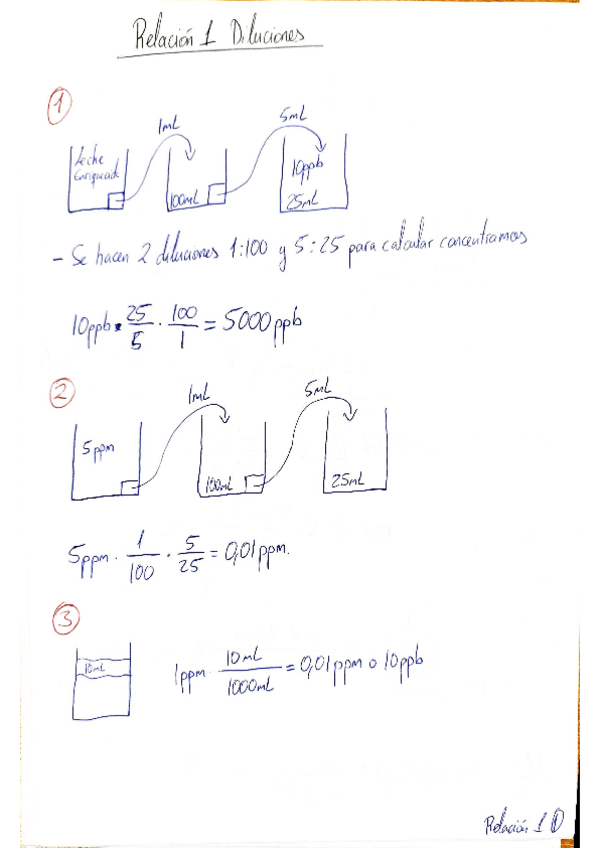 Relación 1 Diluciones
1
1mL
5mL
Leche
10ppb
100mL
25mL
- Se hacen 2 diluciones 1:100 y 5:25 para calcular concentramos
10ppb · 25/5 · 100/1 = 5000ppb
2
1mL
5mL
5ppm
100mL
25mL
5ppm · 1/100 · 5/25 = 0,01ppm.
3
10mL
1ppm · 10mL/1000mL = 0,01ppm o 10ppb
Relación 1 ①